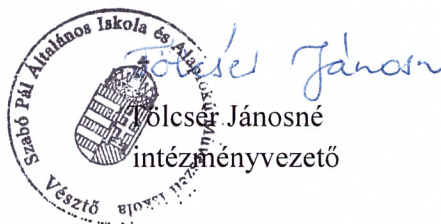 Szabó Pál Általános Iskola és Alapfokú Művészeti Iskola
Vésztő
Tölcsér Jánosn
Tölcsér Jánosné
intézményvezető